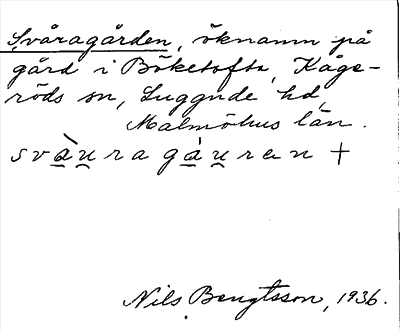 Svåragården, öknamn på
gård i Böketofta, Kåge-
röds sn, Luggude hd,
Malmöhus län.
svàu̲ragáu̲ren +
Nils Bengtsson, 1936.